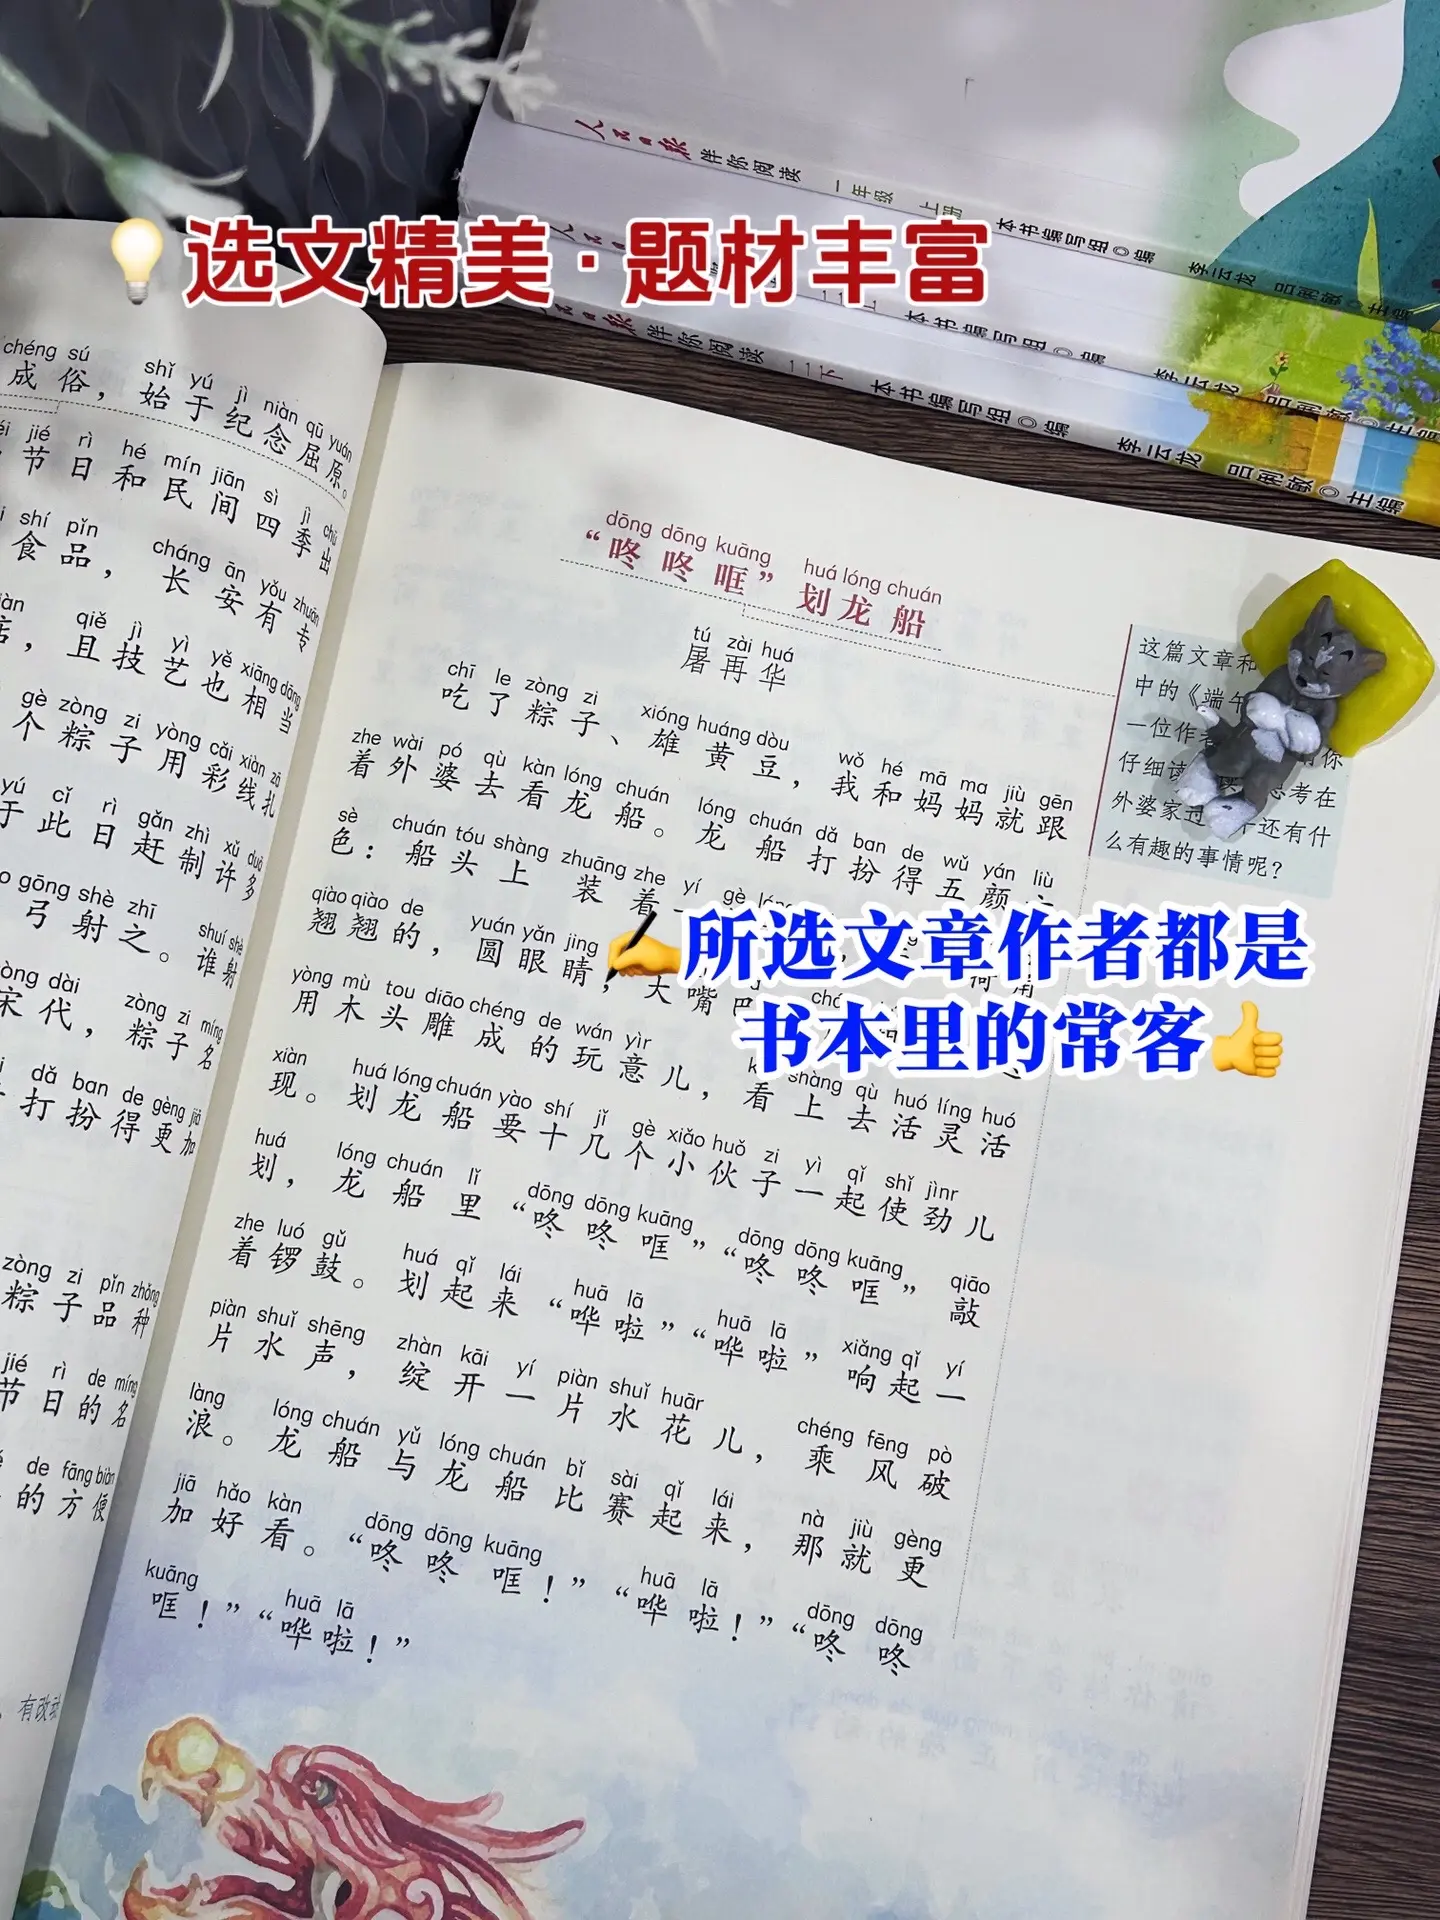 人民日报 伴你阅读 一年级 上册 本书编写组◎编 李云龙 吕俐敏◎主编
二上 本书编写组◎编 李云龙 吕俐敏◎主编
人民日报 伴你阅读 二下 本书编写组◎编 李云龙 吕俐敏◎主编
💡选文精美·题材丰富
chéng sú shǐ yú jì niàn qū yuán
成俗，始于纪念屈原。
jié rì hé mín jiān sì jì chū
节日和民间四季出
shí pǐn cháng ān yǒu zhuān
食品，长安有专
qiě jì yì yě xiāng dāng
，且技艺也相当
gè zòng zi yòng cǎi xiàn zā
个粽子用彩线扎
yú cǐ rì gǎn zhì xǔ duō
于此日赶制许多
gōng shè zhī shuí shè
弓射之。谁射
dài zòng zi míng
宋代，粽子名
dǎ ban de gèng jiā
打扮得更加
zòng zi pǐn zhǒng
粽子品种
jié rì de míng
节日的名
de fāng biàn
的方便
有改动
dōng dōng kuāng huá lóng chuán
“咚咚哐”划龙船
tú zài huá
屠再华
chī le zòng zi xióng huáng dòu wǒ hé mā ma jiù gēn
吃了粽子、雄黄豆，我和妈妈就跟
zhe wài pó qù kàn lóng chuán lóng chuán dǎ ban de wǔ yán liù
着外婆去看龙船。龙船打扮得五颜六
sè chuán tóu shàng zhuāng zhe yí gè
色：船头上装着一
qiào qiào de yuán yǎn jing
翘翘的，圆眼睛，大嘴巴
yòng mù tou diāo chéng de wán yìr kàn shàng qù huó líng huó
用木头雕成的玩意儿，看上去活灵活
xiàn huá lóng chuán yào shí jǐ gè xiǎo huǒ zi yì qǐ shǐ jìnr
现。划龙船要十几个小伙子一起使劲儿
huá lóng chuán lǐ dōng dōng kuāng dōng dōng kuāng qiāo
划，龙船里“咚咚哐”“咚咚哐”敲
zhe luó gǔ huá qǐ lái huā lā huā lā xiǎng qǐ yí
着锣鼓。划起来“哗啦”“哗啦”响起一
piàn shuǐ shēng zhàn kāi yí piàn shuǐ huār chéng fēng pò
片水声，绽开一片水花儿，乘风破
làng lóng chuán yǔ lóng chuán bǐ sài qǐ lái nà jiù gèng
浪。龙船与龙船比赛起来，那就更
jiā hǎo kàn dōng dōng kuāng huā lā dōng dōng
加好看。“咚咚哐！”“哗啦！”“咚咚
kuāng huā lā
哐！”“哗啦！”
这篇文章和
中的《端午
一位作者 你
仔细读 思考在
外婆家过 还有什
么有趣的事情呢？
✍所选文章作者都是
书本里的常客👍